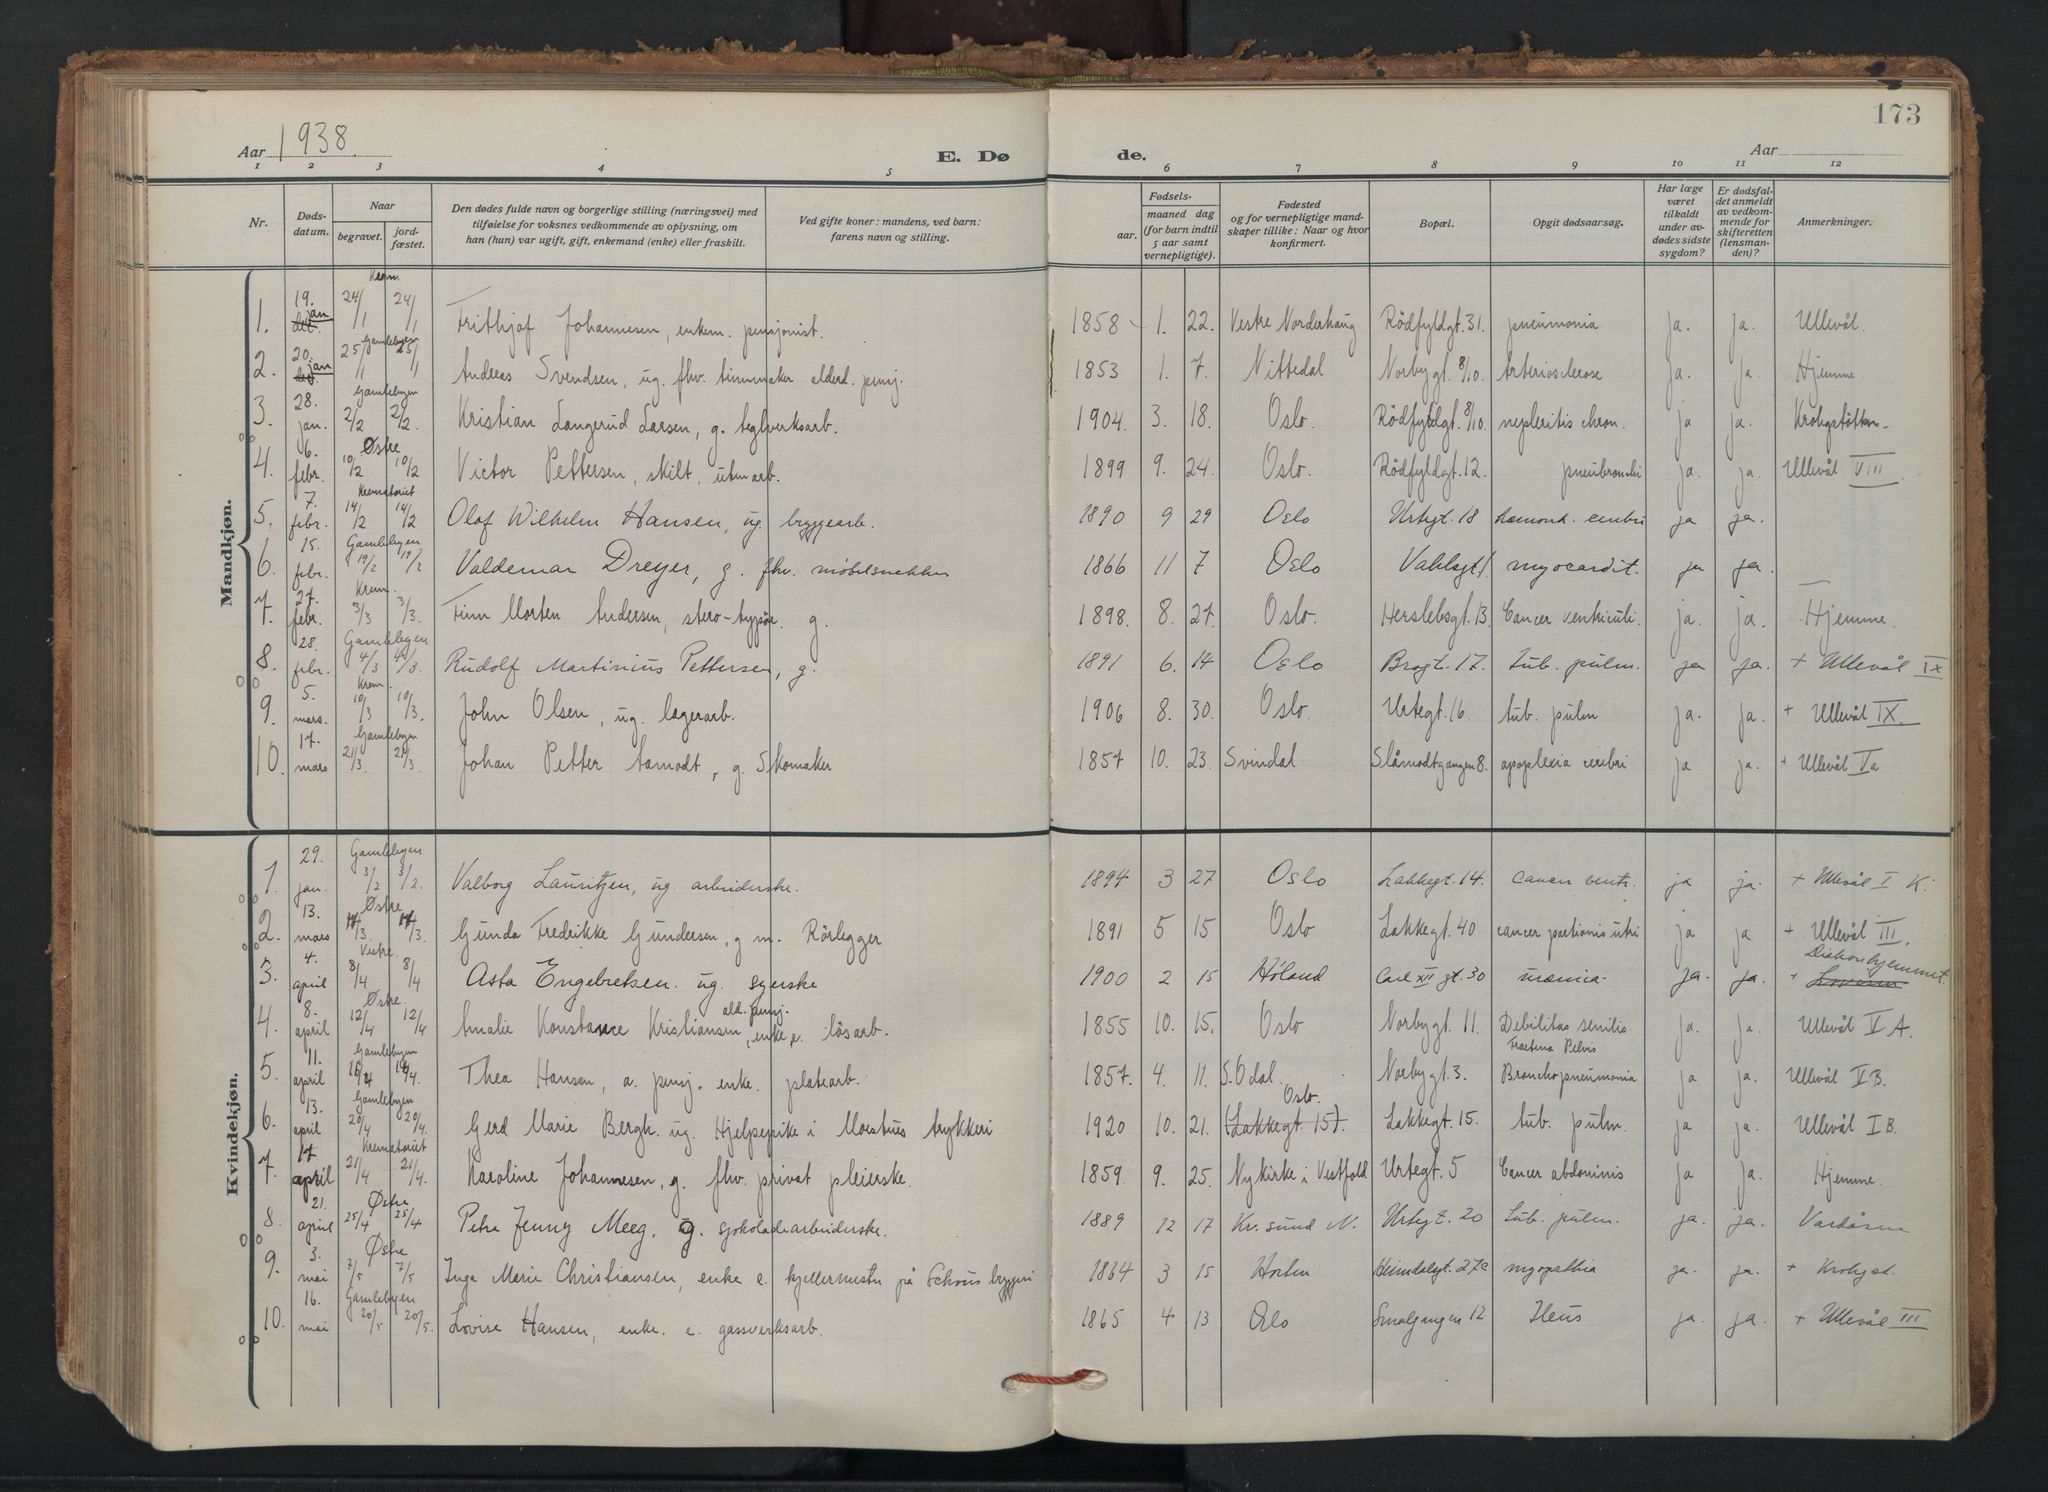 173
Aar 1938.
E. Dø
de.
Aar
1 2 3 4 5 6 7 8 9 10 11 12
Nr.
Døds-
datum.
Naar
begravet.
jord-
fæstet.
Den dødes fulde navn og borgerlige stilling (næringsvei) med
tilføielse for voksnes vedkommende av oplysning, om
han (hun) var ugift, gift, enkemand (enke) eller fraskilt.
Ved gifte koner: mandens, ved barn:
farens navn og stilling.
Fødsels-
aar.
maaned dag
(for barn indtil
5 aar samt
vernepligtige).
Fødested
og for vernepligtige mand-
skaper tillike: Naar og hvor
konfirmert.
Bopæl.
Opgit dødsaarsag.
Har læge
været
tilkaldt
under av-
dødes sidste
sygdom?
Er dødsfal-
det anmeldt
av vedkom-
mende for
skifteretten
(lensman-
den)?
Anmerkninger.
Mandkjøn.
Krem.
1. 19. jan 24/1 24/1 Frithjof Johannesen, enkem. pensjonist. 1858 1. 22. Vestre Norderhaug Rödfyldgt. 31. pneumonia ja. ja. Ullevål.
Gamlebyen
2. 20. jan 25/1 25/1 Andreas Svendsen, ug. fhv. alderd. pensj. 1853 1. 7. Nittedal Norbygt. 8/10. Arteriosclerose ja. ja. Hjemme.
Gamlebyen
3. 28. jan. 2/2 2/2. Kristian Langerud Larsen, g. teglverksarb. 1904. 3. 18. Oslo. Rödfyldgt. 8/10. chron. ja ja.
Østre
4. 6. febr. 10/2 10/2 Victor Pettersen, skilt, utm arb. 1899 9. 24. Oslo. Rödfyldgt. 12. ja. ja. Ullevål VIII.
Krematoriet
5. 7. febr. 14/2 14/2 Olaf Wilhelm Hansen, ug. bryggearb. 1890 9 29 Oslo Urtegt. 18 ja ja.
Gamlebyen
6. 15. febr. 19/2 19/2 Valdemar Dreyer, g. fhv. møbelsnekker 1866 11 7 Oslo Vahlsgt. 1 myocardit. ja ja.
Krem.
7. 27. febr. 3/3 3/3. Finn Morten Andersen, g. 1898. 8. 27. Oslo. Herslebsgt. 13. Cancer ventriculi. ja. ja. Hjemme.
Gamlebyen
8. 28. febr. 4/3 4/3. Rudolf Martinius Pettersen, g. 1891 6. 14 Oslo Brogt. 17. Tub. pulm. ja ja. + Ullevål IX
Krem.
9. 5. mars. 10/3 10/3. John Olsen, ug. lagerarb. 1906 8. 30. Oslo. Urtegt. 16. tub. pulm ja. ja. + Ullevål IX.
Gamlebyen
10. 17. mars 21/3. 21/3. Johan Petter Aamodt, g. Skomaker 1857 10. 23. Svindal. Slåmodtgangen 8. apoplexia cerebri ja ja. + Ullevål Va
Kvindekjøn.
Gamlebyen
1. 29. jan. 3/2 3/2. Valborg Lauritzen, ug. arbeiderske. 1894 3 27 Oslo Lakkegt. 14. cancer ventr. ja ja. + Ullevål I K.
Østre
2. 13. mars 17/3. 17/3. Gunda Fredrikke Gundersen, g m. Rörlegger 1891 5 15 Oslo Lakkegt. 40 cancer portionis utri ja ja + Ullevål III.
Vestre.
3. 4. april 8/4 8/4 Asta Engebretsen. ug. syerske 1900 2 15 Höland Carl XII gt. 30 uræmia. ja. ja. + Diakonhjemmet.
Østre
4. 8. april 12/4 12/4 Amalie Konstance Kristiansen, ald. pensj. enke e. lösarb. 1855 10. 15. Oslo Norbygt. 11. Debilitas senilis ja. ja. Ullevål V A.
Fractura Pelvis
Gamlebyen
5. 11. april 16/4 16/4. Thea Hansen, a. pensj. enke. platearb. 1857. 4. 11. S. Odal. Norbygt. 3. Bronchopneumonia ja ja. Ullevål V B.
Gamlebyen
6. 13. april 20/4 20/4. Gerd Marie Bergh. ug. Hjelpepike i Moestues trykkeri 1920 10. 21. Oslo. (Lakkegt. 15). Lakkegt. 15. tub. pulm. ja ja. Ullevål I B.
Krematoriet
7. 17. april 21/4 21/4. Karoline Johannesen, g. fhv. privat pleierske. 1859. 9. 25. Nykirke i Vestfold Urtegt. 5 Cancer abdominis ja ja. Hjemme.
Østre
8. 21. april 25/4 25/4 Petra Jenny Meeg. g. sjokoladearbeiderske. 1889 12 17 Kr. sund N. Urtegt. 20 Tub. pulm. ja. ja. Vardåsen
Østre
9. 3. mai 7/5 7/5 Inga Marie Christiansen, enke e. kjellermester på Schous bryggeri 1864 3 15 Horten Heimdalsgt. 27c myopathia ja. ja. + Krohgst.
Gamlebyen
10. 16. mai 20/5 20/5. Lovise Hansen, enke. e. gassverksarb. 1865 4 13 Oslo Smalgangen 12 Ileus ja. ja. + Ullevål III